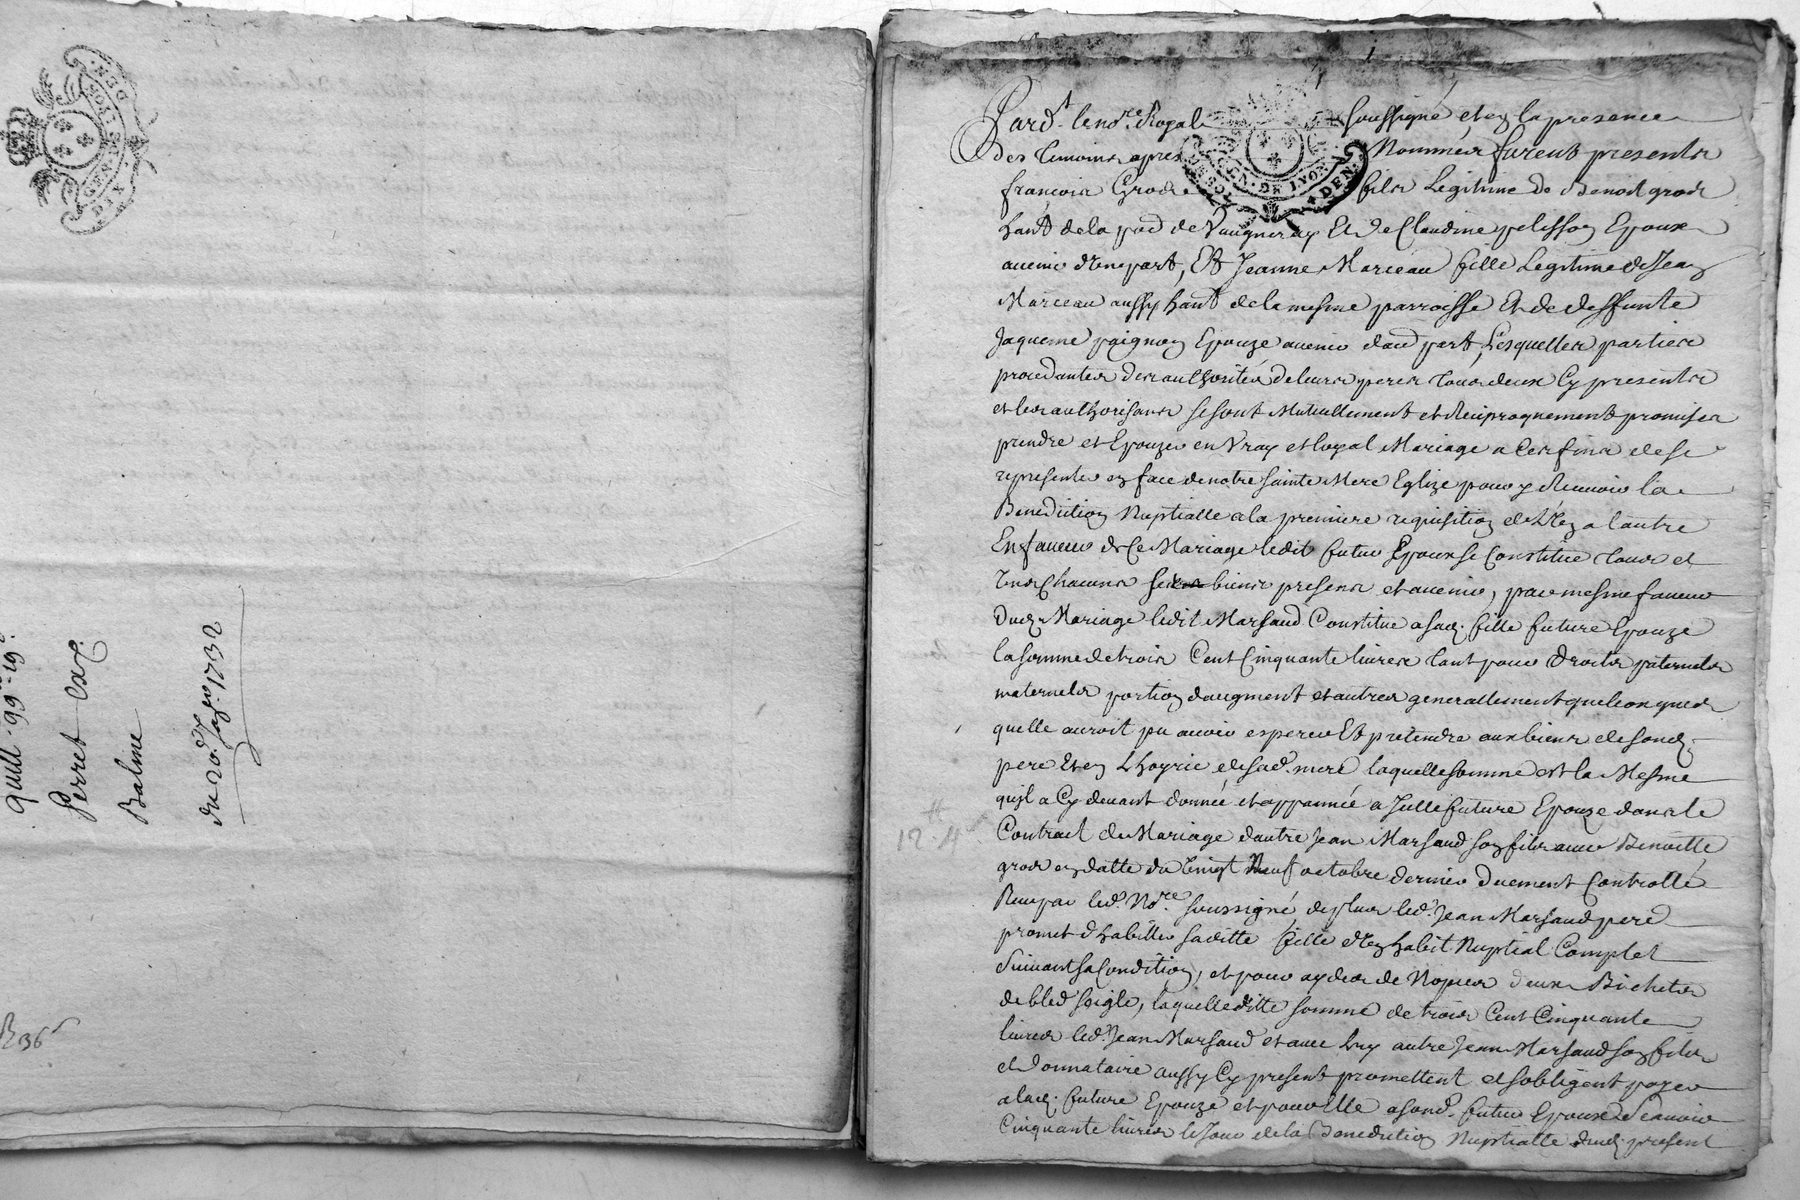 DEN. GEN. DE LYON. DIX
quitt. 99 - 19
Perret Ex.
Balme
du 20e Jer 1732
B 36
Pard.t le no.re Royal soussigné et en la presence
des temoins apres Nommés furent presents
francois Gros fils Legitime de Benoit gros
hant de la par de Vaugneray Et de Claudine pelisson Epoux
avenir d'une part, Et Jeanne Marceau fille Legitime de Jean
Marceau aussy hant de la mesme parroisse Et de deffunte
Jaqueme pignon Epouze avenir dau.e part, Lesquelles parties
procedantes des authorités de leurs peres tous deux Cy presents
et les authorisans se sont Mutuellement et Reciproquement promis se
prendre et Epouzer en Vray et loyal Mariage a Ces fins de se
representer en face de notre sainte Mere Eglize pour y Recevoir la
Benediction Nuptialle a la premiere requisition de L'un a l'autre
En faveur de Ce Mariage ledit futur Epoux se Constitue tous et
uns Chacuns ses biens presens et avenir, par mesme faveur
Dud. Mariage ledit Marsaud Constitue a sad. fille future Epouze
la somme de trois Cent Cinquante livres tant pour droits paternels
maternels portion daugment et autres generallement quelconques
quelle auroit pu avoir esperer Et pretendre aux biens de sond.
pere Et en L'hoyrie de sad. mere laquelle somme est la Mesme
quil a Cy devant donnée et appannée a Jcelle future Epouze dans le
12 ₶ 4 s
Contract de Mariage dautre Jean Marsaud son fils avec Benoitte
gros en datte du Vingt Neuf octobre dernier Duement Controllé
Receu par led. No.re soussigné, de plus led. Jean Marsaud pere
promet d'habiller saditte fille d'un habit Nuptial Complet
Suivant sa Condition, et pour ayder de Nopces deux Bichets
de bled seigle, laquelleditte somme de trois Cent Cinquante
livres led. Jean Marsaud et avec Luy autre Jean Marsaud son fils
et donnataire aussy Cy present promettent et sobligent payer
a lad. future Epouze et pour Elle a sond. futur Epoux Scavoir
Cinquante livres le Jour de la Benediction Nuptialle dud. present